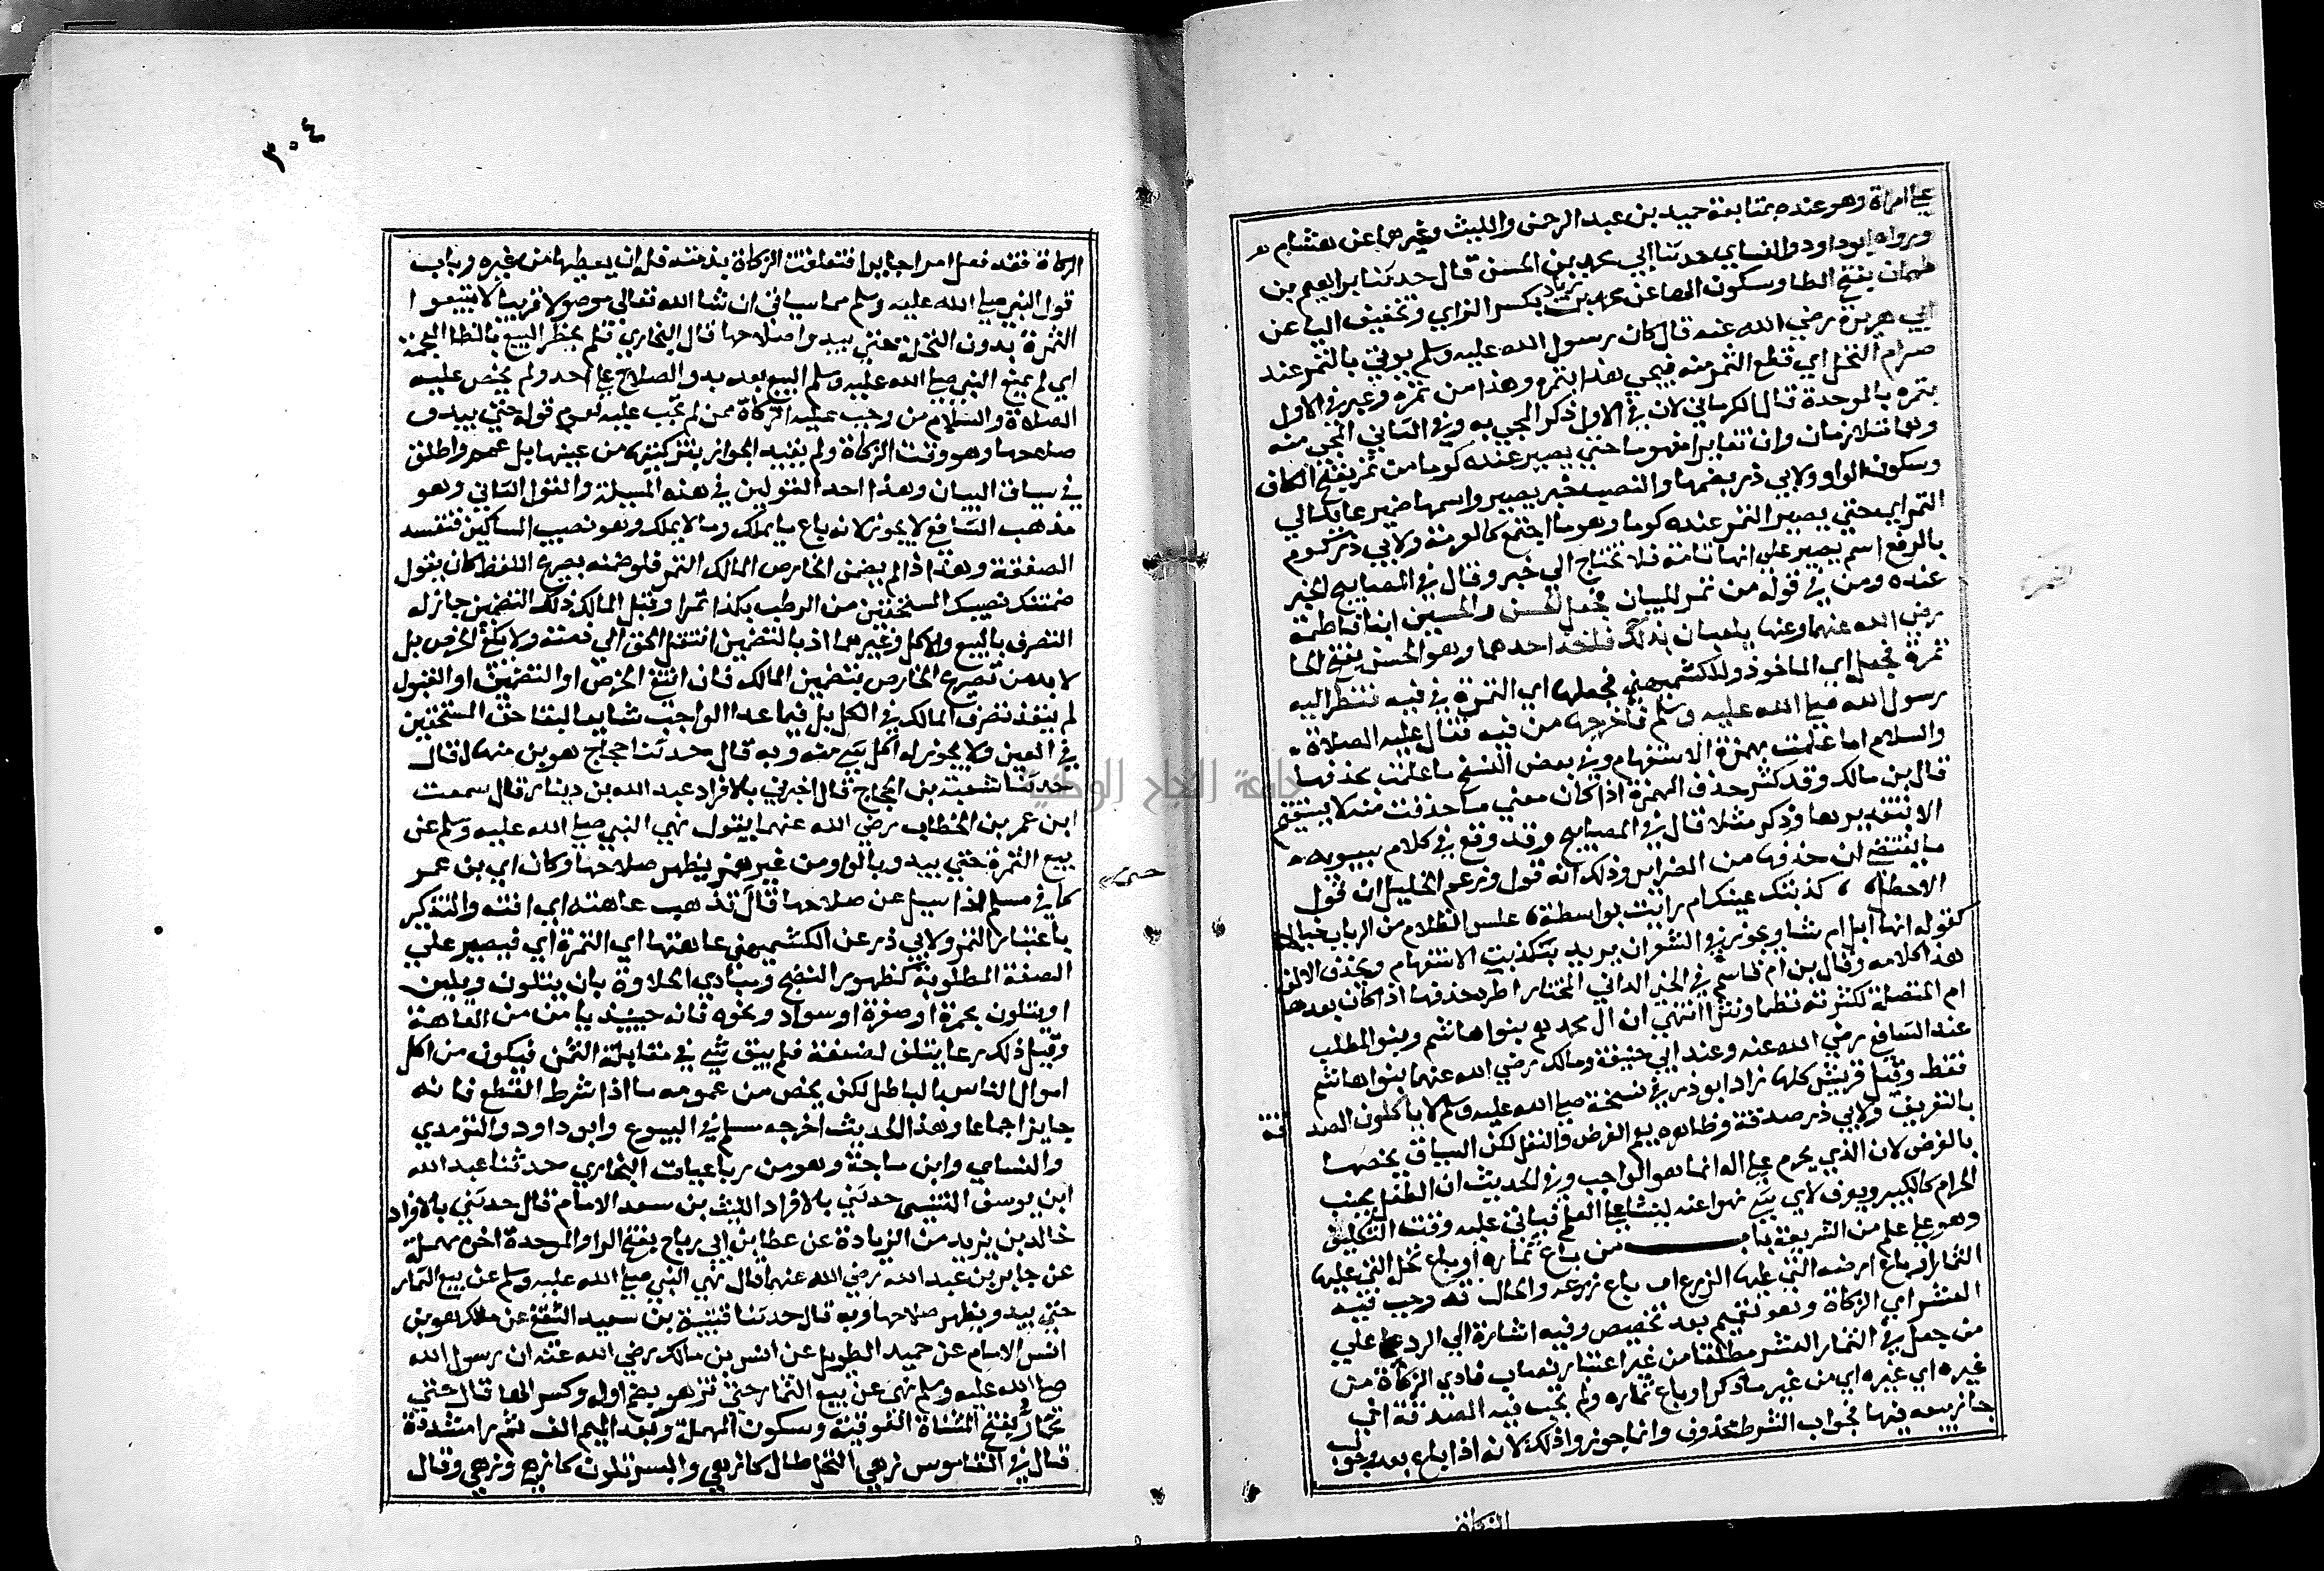 علي امراة وهو عنده بمتابعة حميد بن عبد الرحمن والليث وغيرهما عن هشام
ورواه ابو داود والنساي حدثنا ابي محمد بن الحسن قال حدثنا ابراهيم بن
طهمان بفتح الطا وسكون الها عن محمد بن زياد بكسر الزاي وتخفيف اليا عن
ابي هريرة رضي الله عنه قال كان رسول الله صلي الله عليه وسلم يوتي بالتمر عند
صرام النخل اي قطع الثمر منه فيجي هذا بتمره وهذا من تمره وعبر في الاول
بتمره بالموحدة قال الكرماني لان في الاول ذكر المجي به وفي الثاني المجي منه
وهما متلازمان وان تغايرا مفهوما حتي يصير عنده كوما من تمر بفتح الكاف
وسكون الواو ولابي ذر بضمها والنصب خبر يصير واسمها ضمير عايد الي
التمر اي حتي يصير التمر عنده كوما وهو ما اجتمع كالعرمة ولابي ذر كوم
بالرفع اسم يصير علي انها تامة فلا تحتاج الي خبر وقال في المصابيح الخبر
عنده ومن في قوله من تمر للبيان فجعل الحسن والحسين ابنا فاطمة
رضي الله عنهما وعنها يلعبان بذلك فاخذ احدهما وهو الحسن بفتح الحا
تمرة فجعل اي الماخوذ وللكشميهني فجعلها اي التمرة في فيه فنظر اليه
رسول الله صلي الله عليه وسلم فاخرجها من فيه فقال عليه الصلاة
والسلام اما علمت بهمزة الاستفهام وفي بعض النسخ ما علمت بحذفها
قال بن مالك وقد كثر حذف الهمزة اذا كان معني ما حذفت منه لا يستقيم
الا بتقديرها وذكر مثلا قال في المصابيح وقد وقع في كلام سيبويه
ما يقتضي ان حذفها من الضراير وذلك انه قال وزعم الخليل ان قول
الاخطل كذبتك عينك ام رايت بواسطة غلس الظلام من الرباب خيالا
كقوله انها لابل ام شا ويجوز في الشعر ان يريد بكذبتك الاستفهام ويحذف الالف
هذا كلامه وقال بن ام قاسم في الجني الداني المختار اطراد حذفها اذا كان بعدها
ام المتصلة لكثرته نظما ونثرا انتهي ان ال محمد هم بنوا هاشم وبنو المطلب
عند الشافع رضي الله عنه وعند ابي حنيفة ومالك رضي الله عنهما بنوا هاشم
فقط وقيل قريش كلها زاد ابو ذر في نسخة صلي الله عليه وسلم لا ياكلون الصدقة
بالتعريف ولابي ذر صدقة وظاهره يعم الفرض والنفل لكن السياق يخصها
بالفرض لان الذي يحرم علي اله انما هو الواجب وفي الحديث ان الطفل يجنب
الحرام كالكبير ويعرف لاي شي نهوا عنه لينشا علي العلم فياتي عليه وقت التكليف
وهو علي علم من الشريعة باب من باع ثماره او باع نخله التي عليها
الثمار او باع ارضه التي عليها الزرع او باع زرعه والحال قد وجب فيه
العشر اي الزكاة وهو تعميم بعد تخصيص وفيه اشارة الي الرد علي
من جعل في الثمار العشر مطلقا من غير اعتبار نصاب فادي الزكاة من
غيره اي غيره اي من غير ما ذكر او باع ثماره ولم تجب فيه الصدقة اي
جاز بيعه فيها فجواب الشرط محذوف وانما جوزوا ذلك لانه اذا باع بعد وجوب
الزكاة
٣٠٤
الزكاة فقد فعل امرا جايزا فتعلقت الزكاة بذمته فله ان يعطيها من غيره وباب
قول النبي صلي الله عليه وسلم مما سياتي ان شا الله تعالي موصولا قريبا لا تبيعوا
الثمرة بدون النخلة حتي يبدوا صلاحها قال البخاري فلم يحظر البيع بالظا المعجمة
اي لم يمنع النبي صلي الله عليه وسلم البيع بعد بدو الصلاح علي احد ولم يخص عليه
الصلاة والسلام من وجب عليه الزكاة ممن لم تجب عليه لعموم قوله حتي يبدو
صلاحها وهو وقت الزكاة ولم يقيد الجواز بتزكيتها من عينها بل عمم واطلق
في سياق البيان وهذا احد القولين في هذه المسيلة والقول الثاني وهو
مذهب الشافع لا يجوز لانه باع ما يملك وما لا يملك وهو نصيب المساكين فتفسد
الصفقة وهذا اذا لم يضمن الخارص المالك التمر فلو ضمنه بصريح اللفظ كان يقول
ضمنتك نصيب المستحقين من الرطب بكذا تمرا وقبل المالك ذلك التضمين جاز له
التصرف بالبيع والاكل وغيرهما اذ بالتضمين انتقل الحق الي ذمته ولا يكفي الخرص بل
لا بد من تصريح الخارص بتضمين المالك فان انتفي الخرص او التضمين او القبول
لم ينفذ تصرف المالك في الكل بل فيما عدا الواجب شايعا لبقا حق المستحقين
في العين ولا يجوز له اكل شي منه وبه قال حدثنا حجاج هو بن منهال قال
حدثنا شعبة بن الحجاج قال اخبرني بالافراد عبد الله بن دينار قال سمعت
ابن عمر بن الخطاب رضي الله عنهما يقول نهي النبي صلي الله عليه وسلم عن
بيع الثمرة حتي يبدو بالواو من غير همز يظهر صلاحها وكان اي بن عمر
كما في مسلم اذا سيل عن صلاحها قال تذهب عاهته اي افته والتذكير
باعتبار الثمر ولابي ذر عن الكشميهني عاهتها اي الثمرة اي فيصير علي
الصفة المطلوبة كظهور النضج ومبادي الحلاوة بان يتلون ويلين
او يتلون بحمرة او صفرة او سواد ونحوه فانه حينيذ يامن من العاهة
وقبل ذلك ربما يتلف لضعفه فلم يبق شي في مقابلة الثمن فيكون من اكل
اموال الناس بالباطل لكن يخص من عمومه ما اذا شرط القطع فانه
جايز اجماعا وهذا الحديث اخرجه مسلم في البيوع وابو داود والترمدي
والنساي وابن ماجة وهو من رباعيات البخاري حدثنا عبد الله
ابن يوسف التنيسي حدثني بالافراد الليث بن سعد الامام قال حدثني بالافراد
خالد بن يزيد من الزيادة عن عطا بن ابي رباح بفتح الرا والموحدة اخره مهملة
عن جابر بن عبد الله رضي الله عنهما قال نهي النبي صلي الله عليه وسلم عن بيع الثمار
حتي يبدو يظهر صلاحها وبه قال حدثنا قتيبة بن سعيد الثقفي عن مالك هو بن
انس الامام عن حميد الطويل عن انس بن مالك رضي الله عنه ان رسول الله
صلي الله عليه وسلم نهي عن بيع الثمار حتي تزهو بضم اوله وكسر الها قال حتي
تحمار بفتح المثناة الفوقية وسكون المهملة وبعد الميم الف ثم را مشددة
قال في القاموس زهي النخل طال كازهي والبسر تلون كازهي وزهي وقال
جامعة النجاح الوطنية